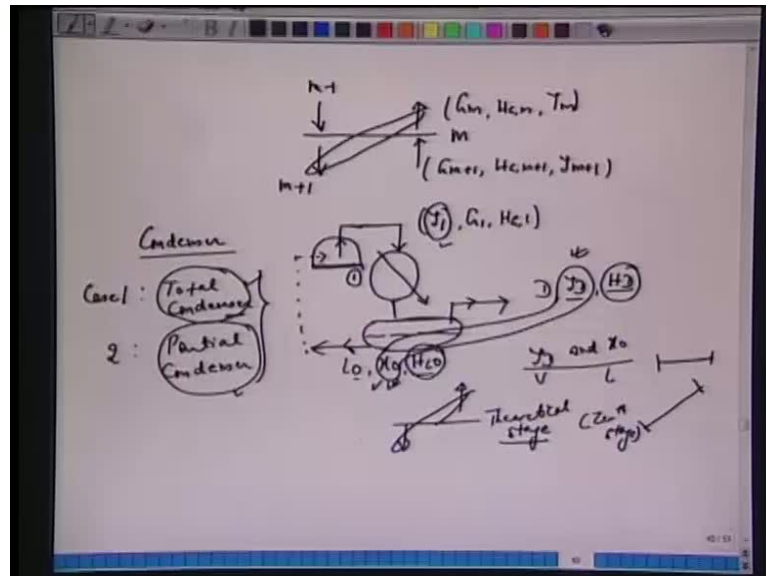 n-1
(Gn, HGn, Yn)
n
n+1
(Gn+1, HGn+1, Yn+1)
Condenser
(Y1, G1, HG1)
Case1 : Total Condenser
2 : Partial Condenser
1
D YD, HD
L0, X0, HL0
YD and X0
V L
Theoretical stage (Zeroth stage)